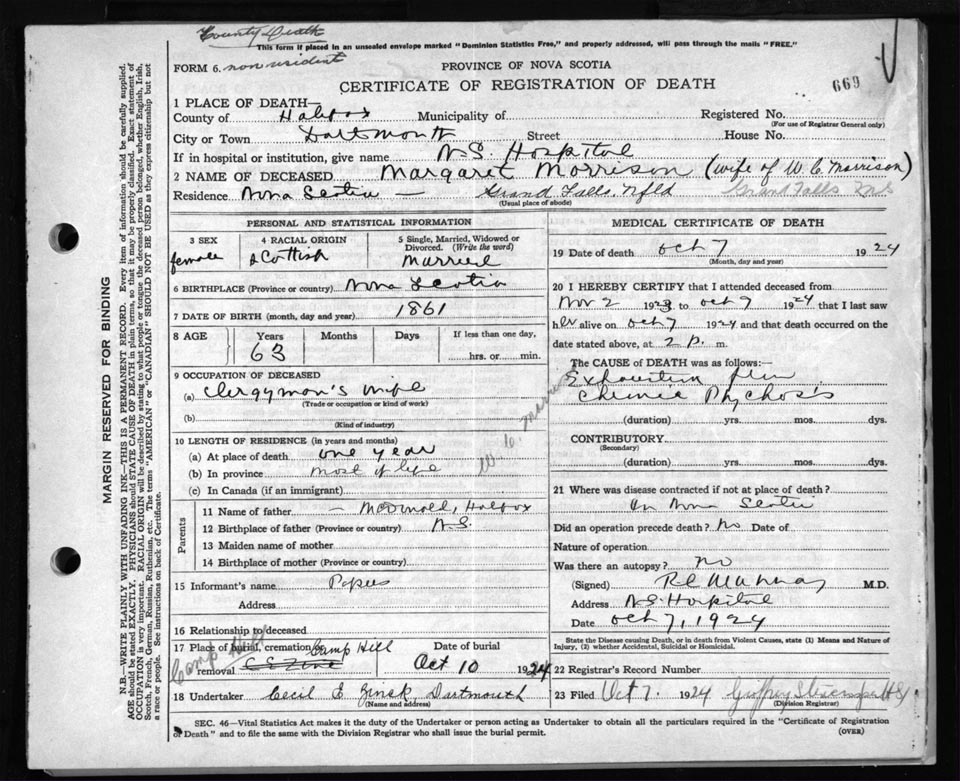 County Death
This form if placed in an unsealed envelope marked "Dominion Statistics Free," and properly addressed, will pass through the mails "FREE."
FORM 6. non resident
PROVINCE OF NOVA SCOTIA
CERTIFICATE OF REGISTRATION OF DEATH
669
1 PLACE OF DEATH—
County of Halifax Municipality of Registered No.
(For use of Registrar General only)
City or Town Dartmouth Street House No.
If in hospital or institution, give name N.S. Hospital
2 NAME OF DECEASED Margaret Morrison (wife of W. C. Morrison)
Residence Nova Scotia — Grand Falls, Nfld Grand Falls
(Usual place of abode)
PERSONAL AND STATISTICAL DATA
3 SEX
female
4 RACIAL ORIGIN
Scottish
5 Single, Married, Widowed or Divorced. (Write the word)
Married
6 BIRTHPLACE (Province or country) Nova Scotia
7 DATE OF BIRTH (month, day and year) 1861
8 AGE Years Months Days If less than one day,
63 hrs. or min.
9 OCCUPATION OF DECEASED
(a) Clergyman's wife
(Trade or occupation or kind of work)
(b)
(Kind of industry)
10 LENGTH OF RESIDENCE (in years and months)
(a) At place of death one year
(b) In province most of life
(c) In Canada (if an immigrant)
Parents
11 Name of father — McDonald, Halifax
12 Birthplace of father (Province or country) N.S.
13 Maiden name of mother
14 Birthplace of mother (Province or country)
15 Informant's name Papers
Address
16 Relationship to deceased
17 Place of burial, cremation Camp Hill Date of burial
removal Oct 10 1924
Camp Hill
18 Undertaker Cecil E. Zink, Dartmouth
(Name and address)
MEDICAL CERTIFICATE OF DEATH
19 Date of death Oct 7 1924
(Month, day and year)
20 I HEREBY CERTIFY that I attended deceased from
Nov 2 1923 to Oct 7 1924 that I last saw
her alive on Oct 7 1924 and that death occurred on the
date stated above, at 2 p. m.
The CAUSE of DEATH was as follows:—
Exhaustion from
Chronic Phychosis
(duration) yrs. mos. dys.
CONTRIBUTORY
(Secondary)
(duration) yrs. mos. dys.
21 Where was disease contracted if not at place of death?
In Nova Scotia
Did an operation precede death? No Date of
Nature of operation
Was there an autopsy? no
(Signed) Murray M.D.
Address N.S. Hospital
Date Oct 7, 1924
State the Disease causing Death, or in death from Violent Causes, state (1) Means and Nature of Injury, (2) whether Accidental, Suicidal or Homicidal.
22 Registrar's Record Number
23 Filed Oct 7. 1924
(Division Registrar)
SEC. 46—Vital Statistics Act makes it the duty of the Undertaker or person acting as Undertaker to obtain all the particulars required in the "Certificate of Registration
of Death" and to file the same with the Division Registrar who shall issue the burial permit.
(OVER)
MARGIN RESERVED FOR BINDING
N.B.—WRITE PLAINLY WITH UNFADING INK—THIS IS A PERMANENT RECORD. Every item of information should be carefully supplied.
AGE should be stated EXACTLY. PHYSICIANS should STATE CAUSE OF DEATH in plain terms, so that it may be properly classified. Exact statement of
OCCUPATION is very important. RACIAL ORIGIN will be described by stating to what people or tongue the deceased person belonged, whether English, Irish,
Scotch, French, German, Russian, Ruthenian, etc. The terms "AMERICAN" or "CANADIAN" SHOULD NOT BE USED as they express citizenship but not
a race or people. See instructions on back of Certificate.